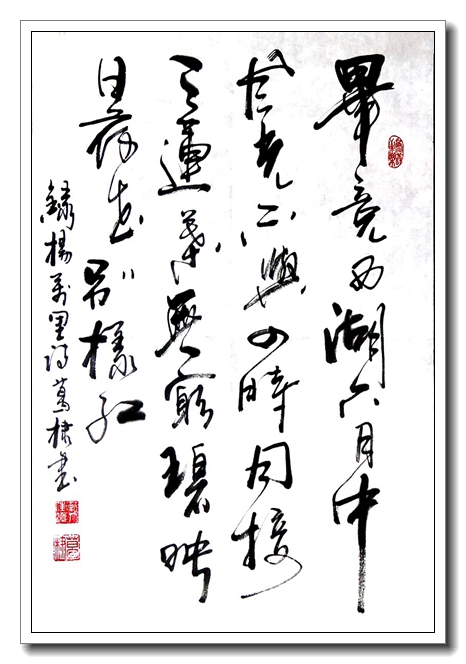 畢竟西湖六月中
風光不與四時同接
天蓮葉無窮碧映
日荷花別樣紅
錄楊萬里詩書